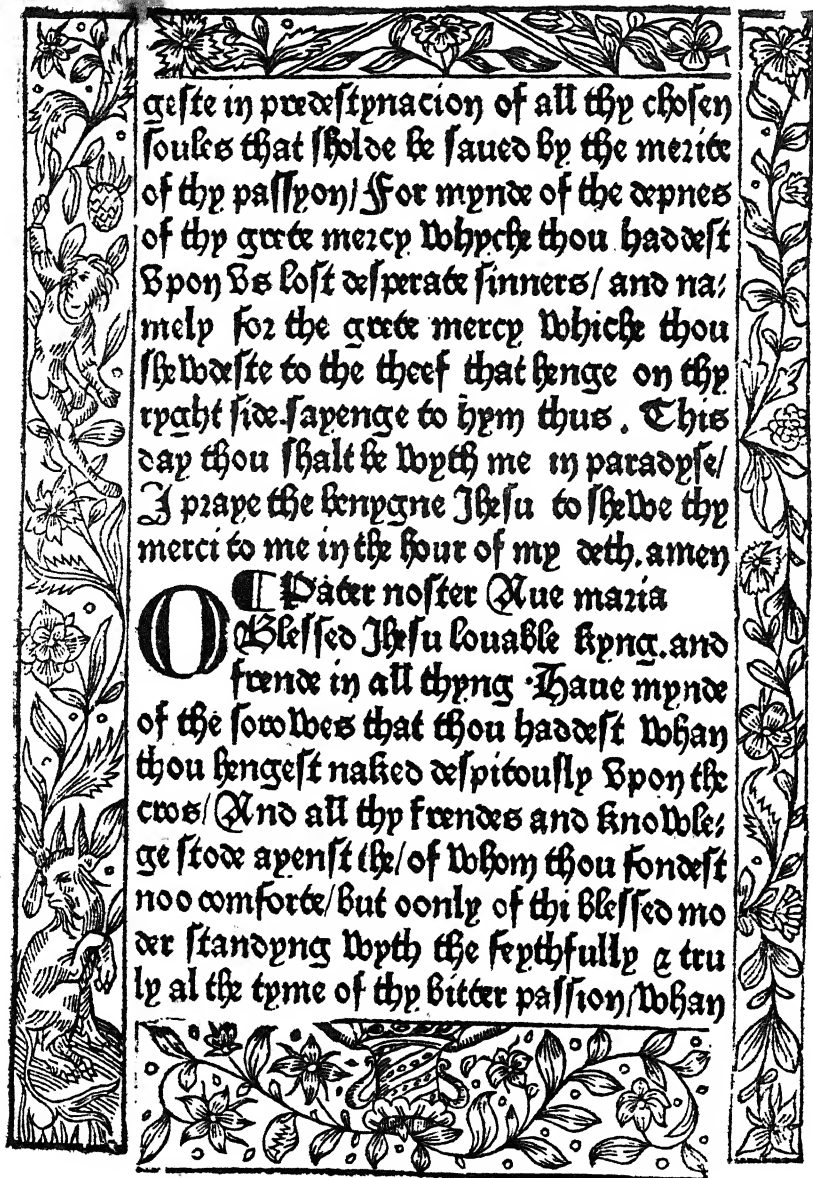 geste in predestynacion of all thy chosen
soules that sholde be saued by the merite
of thy passyon/ For mynde of the depnes
of thy grete mercy whyche thou haddest
vpon vs lost desperate sinners/ and na-
mely for the grete mercy whiche thou
shewdeste to the theef that henge on thy
ryght side.sayenge to hym thus . This
day thou shalt be wyth me in paradyse/
I praye the benygne Jhesu to shewe thy
merci to me in the hour of my deth. amen
¶ Pater noster Aue maria
O Blessed Jhesu louable kyng. and
frende in all thyng .Haue mynde
of the sorowes that thou haddest whan
thou hengest naked despitously vpon the
cros/ And all thy frendes and knowle-
ge stode ayenst the/ of whom thou fondest
noo comforte/ but oonly of thi blessed mo
der standyng wyth the feythfully & tru
ly al the tyme of thy bitter passion/ whan